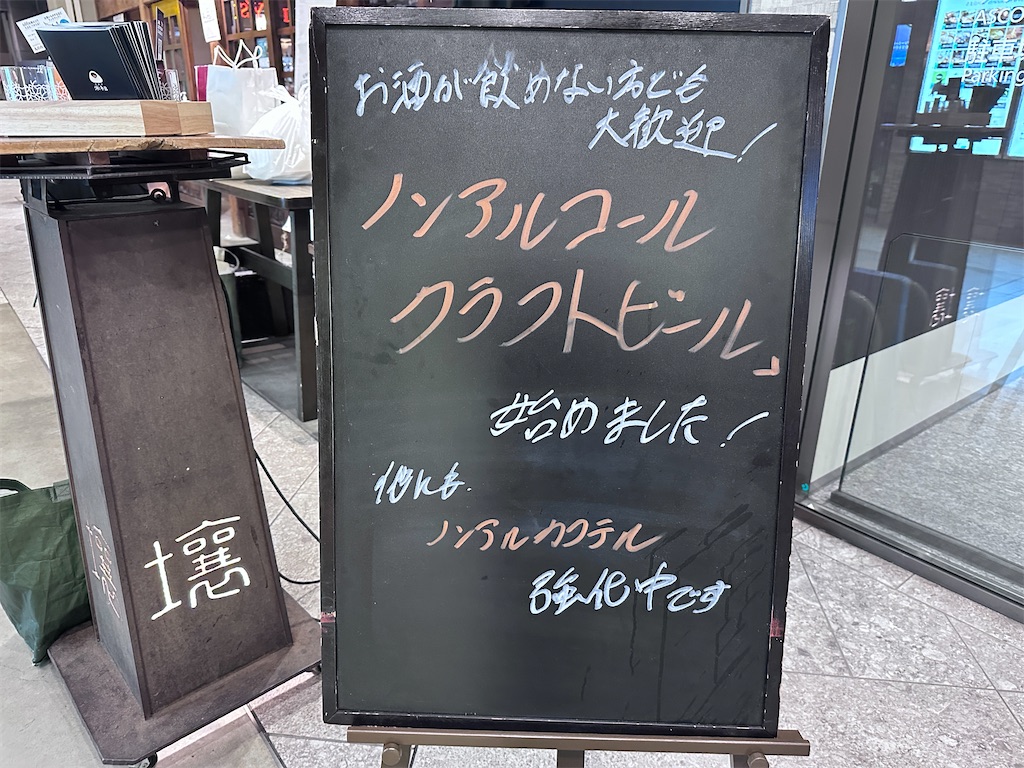 お酒が飲めない方でも
大歓迎!
ノンアルコール
クラフトビール」
始めました!
他にも
ノンアルカクテル
強化中です
壌
Parking